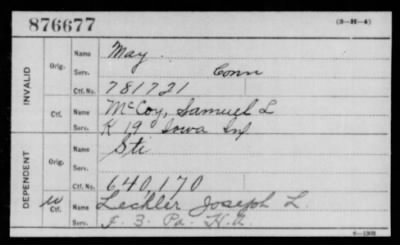 876677
(3-H-4)
INVALID
Orig.
Name May
Serv. Conn
Ctf. No. 781721
Ctf.
Name McCoy, Samuel L
Serv. K 19 Iowa Inf
DEPENDENT
Orig.
Name Sti
Serv.
Ctf. No. 640,170
W Ctf.
Name Lechler Joseph L.
Serv. F. 3. Pa. H.A.